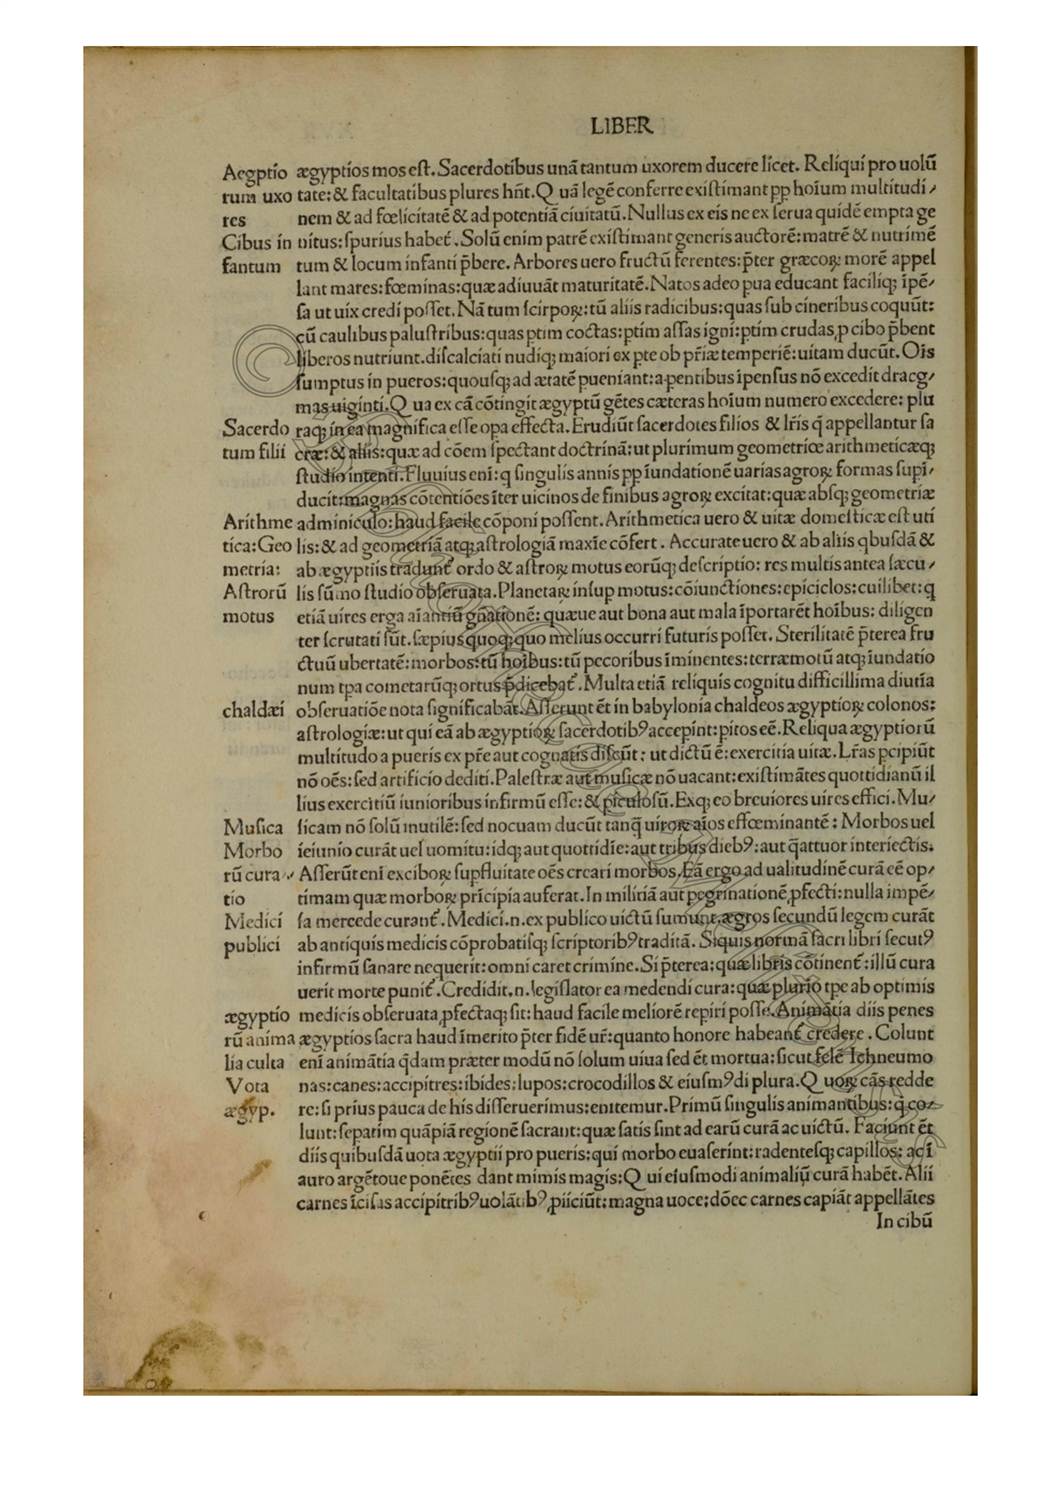 LIBER
Aegptio ægyptios mos eſt. Sacerdotibus unã tantum uxorem ducere licet. Reliqui pro uolũ
rum uxo tate: & facultatibus plures hñt. Q uã legẽ conferre exiſtimant pp hoĩum multitudi⸗
res nem & ad fœlicitatẽ & ad potentiã ciuitatũ. Nullus ex eis ne ex ſerua quidẽ empta ge
Cibus in nitus: ſpurius habet̃. Solũ enim patrẽ exiſtimant generis auctorẽ: matrẽ & nutrimẽ
fantum tum & locum infanti p̃bere. Arbores uero fructũ ferentes: p̃ter græcoꝝ morẽ appel
lant mares: fœminas: quæ adiuuãt maturitatẽ. Natos adeo pua educant faciliq; ĩpẽ⸗
ſa ut uix credi poſſet. Nã tum ſcirpoꝝ: tũ aliis radicibus: quas ſub cineribus coquũt:
cũ caulibus paluſtribus: quas ptim coctas: ptim aſſas igni: ptim crudas, p cibo p̃bent
liberos nutriunt. diſcalciati nudiq; maiori ex pte ob pr̃iæ temperiẽ: uitam ducũt. Oĩs
ſumptus in pueros: quouſq; ad ætatẽ pueniant: a pentibus ĩpenſus nõ excedit dracg⸗
mas uiginti. Q ua ex cã cõtingit ægyptũ gẽtes cæteras hoĩum numero excedere: plu
Sacerdo raq; in ea magnifica eſſe opa effecta. Erudiũt ſacerdotes filios & lr̃is q̃ appellantur ſa
tum filii cræ: & aliis: quæ ad cõem ſpectant doctrinã: ut plurimum geometriæ arithmeticæq;
ſtudio intenti. Fluuius eni: q ſingulis annis pp ĩundationẽ uarias agroꝝ formas ſupĩ⸗
ducit: magnas cõtentiões ĩter uicinos de finibus agroꝝ excitat: quæ abſq; geometriæ
Arithme adminiculo: haud facile cõponi poſſent. Arithmetica uero & uitæ domeſticæ eſt uti
tica: Geo lis: & ad geometriã atq; aſtrologiã maxĩe cõfert. Accurate uero & ab aliis qbuſdã &
metria: ab ægyptiis tradunt̃ ordo & aſtroꝝ motus eorũq; deſcriptio: res multis antea ſæcu⸗
Aſtrorũ lis ſũmo ſtudio obſeruata. Planetaꝝ inſup motus: cõiunctiones: epiciclos: cuilibet: q
motus etiã uires erga aĩantiũ gñationẽ: quæue aut bona aut mala ĩportarẽt hoĩbus: diligen
ter ſcrutati ſũt. ſæpius quoq; quo melius occurri futuris poſſet. Sterilitatẽ p̃terea fru
ctuũ ubertatẽ: morbos: tũ hoĩbus: tũ pecoribus ĩminentes: terræmotũ atq; ĩundatio
num tpa cometarũq; ortus p̃dicebãt. Multa etiã reliquis cognitu difficillima diutia
chaldæi obſeruatiõe nota ſignificabãt. Aſſerunt ẽt in babylonia chaldeos ægyptioꝝ colonos:
aſtrologiæ: ut qui eã ab ægyptioꝝ ſacerdotibꝰ accepĩnt: pitos eẽ. Reliqua ægyptiorũ
multitudo a pueris ex pr̃e aut cognatis diſcũt: ut dictũ ẽ: exercitia uitæ. Lr̃as pcipiũt
nõ oẽs: ſed artificio dediti. Paleſtræ aut muſicæ nõ uacant: exiſtimãtes quottidianũ il
lius exercitiũ iunioribus infirmũ eſſe: & piculoſũ. Exq; eo breuiores uires effici. Mu⸗
Muſica ſicam nõ ſolũ inutilẽ: ſed nocuam ducũt tanq̃ uiroꝝ aĩos effœminantẽ: Morbos uel
Morbo ieiunio curãt uel uomitu: idq; aut quottidie: aut tribus diebꝰ: aut q̃attuor interiectis.
rũ cura⸗ Aſſerũt eni exciboꝝ ſupfluitate oẽs creari morbos. Eã ergo ad ualitudinẽ curã eẽ op⸗
tio timam quæ morboꝝ prĩcipia auferat. In militiã aut pegrinationẽ, pfecti: nulla impẽ⸗
Medici ſa mercede curant̃. Medici.n.ex publico uictũ ſumunt. ægros ſecundũ legem curãt
publici ab antiquis medicis cõprobatiſq; ſcriptoribꝰ traditã. Siquis normã ſacri libri ſecutꝰ
infirmũ ſanare nequerit: omni caret crimine. Si p̃terea: quæ libris cõtinent̃: illũ cura
uerit morte punit̃. Credidit.n.legiſlator ea medendi cura: quæ plurio tpe ab optimis
ægyptio medicis obſeruata, pfectaq; ſit: haud facile meliorẽ repiri poſſe. Animãtia diis penes
rũ anima ægyptios ſacra haud ĩmerito p̃ter fidẽ ur̃: quanto honore habeant̃ credere. Colunt
lia culta eni animãtia q̃dam præter modũ nõ ſolum uiua ſed ẽt mortua: ſicut felẽ Ichneumo
Vota nas: canes: accipitres: ibides: lupos: crocodillos & eiuſmꝰdi plura. Q uoꝝ cãs redde
ægyp. re: ſi prius pauca de his diſſeruerimus: enitemur. Primũ ſingulis animantibus: q̃ co⸗
lunt: ſepatim quãpiã regionẽ ſacrant: quæ ſatis ſint ad earũ curã ac uictũ. Faciunt ẽt
diis quibuſdã uota ægyptii pro pueris: qui morbo euaſerint: radenteſq; capillos: ac ĩ
auro argẽtoue ponẽtes dant mimis magis: Q ui eiuſmodi animaliũ curã habẽt. Alii
carnes ĩciſas accipitribꝰ uolãtibꝰ, piiciũt: magna uoce: dõec carnes capiãt appellãtes
In cibũ